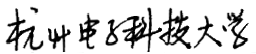 杭州电子科技大学